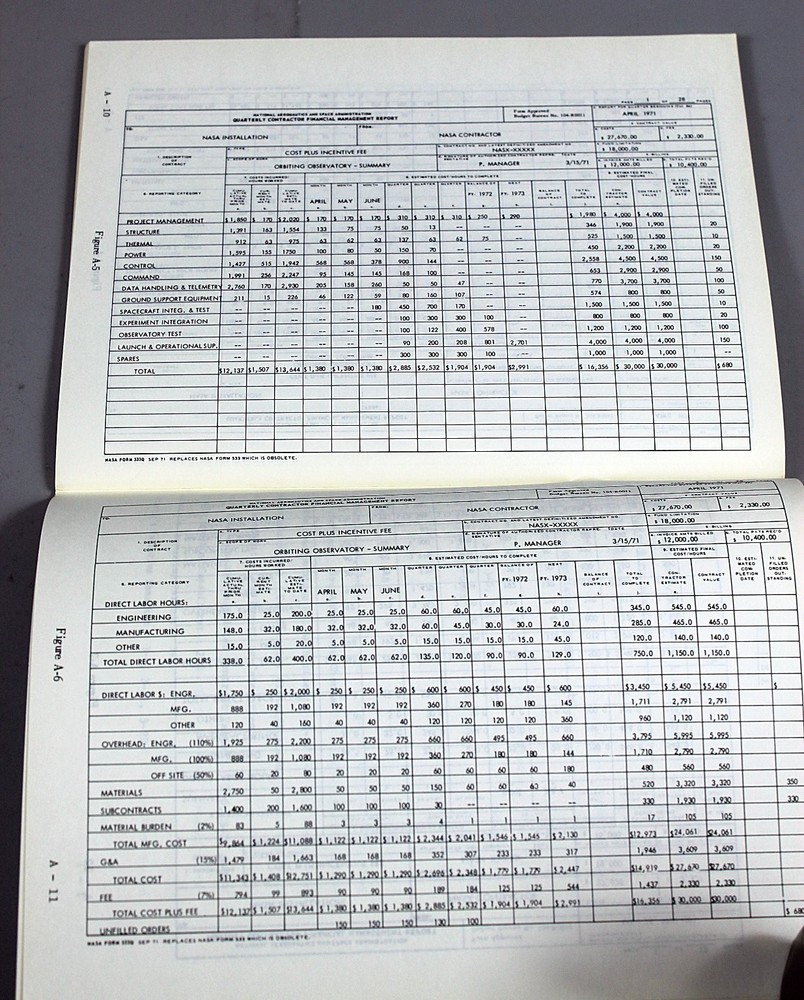 A - 10
Figure A-5
PAGE 1 OF 28 PAGES
NATIONAL AERONAUTICS AND SPACE ADMINISTRATION
QUARTERLY CONTRACTOR FINANCIAL MANAGEMENT REPORT
Form Approved
APRIL 1971
TO: NASA INSTALLATION FROM: NASA CONTRACTOR
$ 27,670.00 $ 2,330.00
COST PLUS INCENTIVE FEE NASX-XXXXX $ 18,000.00
1. DESCRIPTION OF CONTRACT
ORBITING OBSERVATORY - SUMMARY P. MANAGER 3/15/71 $ 12,000.00 $ 10,400.00
6. REPORTING CATEGORY APRIL MAY JUNE FY. 1972 FY. 1973
PROJECT MANAGEMENT $ 1,850 $ 170 $ 2,020 $ 170 $ 170 $ 170 $ 310 $ 310 $ 310 $ 250 $ 290 $ 1,980 $ 4,000 $ 4,000
STRUCTURE 1,391 163 1,554 133 75 75 50 13 -- -- -- 346 1,900 1,900 20
THERMAL 912 63 975 63 62 63 137 63 62 75 -- 525 1,500 1,500 10
POWER 1,595 155 1750 100 80 50 150 70 -- -- -- 450 2,200 2,200 20
CONTROL 1,427 515 1,942 568 568 378 900 144 -- -- -- 2,558 4,500 4,500 150
COMMAND 1,991 256 2,247 95 145 145 168 100 -- -- -- 653 2,900 2,900 50
DATA HANDLING & TELEMETRY 2,760 170 2,930 205 158 260 50 50 47 -- -- 770 3,700 3,700 100
GROUND SUPPORT EQUIPMENT 211 15 226 46 122 59 80 160 107 -- -- 574 800 800 50
SPACECRAFT INTEG. & TEST -- -- -- -- -- 180 450 700 170 -- -- 1,500 1,500 1,500 10
EXPERIMENT INTEGRATION -- -- -- -- -- -- 100 300 300 100 -- 800 800 800 20
OBSERVATORY TEST -- -- -- -- -- -- 100 122 400 578 -- 1,200 1,200 1,200 100
LAUNCH & OPERATIONAL SUP. -- -- -- -- -- -- 90 200 208 801 2,701 4,000 4,000 4,000 150
SPARES -- -- -- -- -- -- 300 300 300 100 -- 1,000 1,000 1,000 --
TOTAL $12,137 $1,507 $13,644 $1,380 $1,380 $1,380 $2,885 $2,532 $1,904 $1,904 $2,991 $ 16,356 $ 30,000 $ 30,000 $ 680
NASA FORM 533Q SEP 71 REPLACES NASA FORM 533 WHICH IS OBSOLETE.
A - 11
Figure A-6
QUARTERLY CONTRACTOR FINANCIAL MANAGEMENT REPORT
APRIL 1971
NASA INSTALLATION FROM: NASA CONTRACTOR
$ 27,670.00 2,330.00
COST PLUS INCENTIVE FEE NASX-XXXXX $ 18,000.00
1. DESCRIPTION OF CONTRACT
ORBITING OBSERVATORY - SUMMARY P. MANAGER 3/15/71 $ 12,000.00 $ 10,400.00
6. REPORTING CATEGORY APRIL MAY JUNE FY. 1972 FY. 1973
DIRECT LABOR HOURS:
ENGINEERING 175.0 25.0 200.0 25.0 25.0 25.0 60.0 60.0 45.0 45.0 60.0 345.0 545.0 545.0
MANUFACTURING 148.0 32.0 180.0 32.0 32.0 32.0 60.0 45.0 30.0 30.0 24.0 285.0 465.0 465.0
OTHER 15.0 5.0 20.0 5.0 5.0 5.0 15.0 15.0 15.0 15.0 45.0 120.0 140.0 140.0
TOTAL DIRECT LABOR HOURS 338.0 62.0 400.0 62.0 62.0 62.0 135.0 120.0 90.0 90.0 129.0 750.0 1,150.0 1,150.0
DIRECT LABOR $: ENGR. $1,750 $ 250 $2,000 $ 250 $ 250 $ 250 $ 600 $ 600 $ 450 $ 450 $ 600 $3,450 $ 5,450 $5,450 $
MFG. 888 192 1,080 192 192 192 360 270 180 180 145 1,711 2,791 2,791
OTHER 120 40 160 40 40 40 120 120 120 120 360 960 1,120 1,120
OVERHEAD: ENGR. (110%) 1,925 275 2,200 275 275 275 660 660 495 495 660 3,795 5,995 5,995
MFG. (100%) 888 192 1,080 192 192 192 360 270 180 180 144 1,710 2,790 2,790
OFF SITE (50%) 60 20 80 20 20 20 60 60 60 60 180 480 560 560
MATERIALS 2,750 50 2,800 50 50 50 150 60 60 60 40 520 3,320 3,320 350
SUBCONTRACTS 1,400 200 1,600 100 100 100 30 -- -- -- -- 330 1,930 1,930 330
MATERIAL BURDEN (2%) 83 5 88 3 3 3 4 1 1 1 1 17 105 105
TOTAL MFG. COST $9,864 $ 1,224 $11,088 $ 1,122 $ 1,122 $ 1,122 $ 2,344 $ 2,041 $ 1,546 $ 1,545 $ 2,130 $12,973 $24,061 $24,061
G&A (15%) 1,479 184 1,663 168 168 168 352 307 233 233 317 1,946 3,609 3,609
TOTAL COST $11,343 $ 1,408 $12,751 $ 1,290 $ 1,290 $ 1,290 $ 2,696 $ 2,348 $ 1,779 $ 1,779 $ 2,447 $14,919 $27,670 $27,670
FEE (7%) 794 99 893 90 90 90 189 184 125 125 544 1,437 2,330 2,330
TOTAL COST PLUS FEE $12,137 $ 1,507 $13,644 $ 1,380 $ 1,380 $ 1,380 $ 2,885 $ 2,532 $ 1,904 $ 1,904 $ 2,991 $16,356 $ 30,000 $30,000 $ 680
UNFILLED ORDERS 150 150 150 130 100
NASA FORM 533Q SEP 71 REPLACES NASA FORM 533 WHICH IS OBSOLETE.